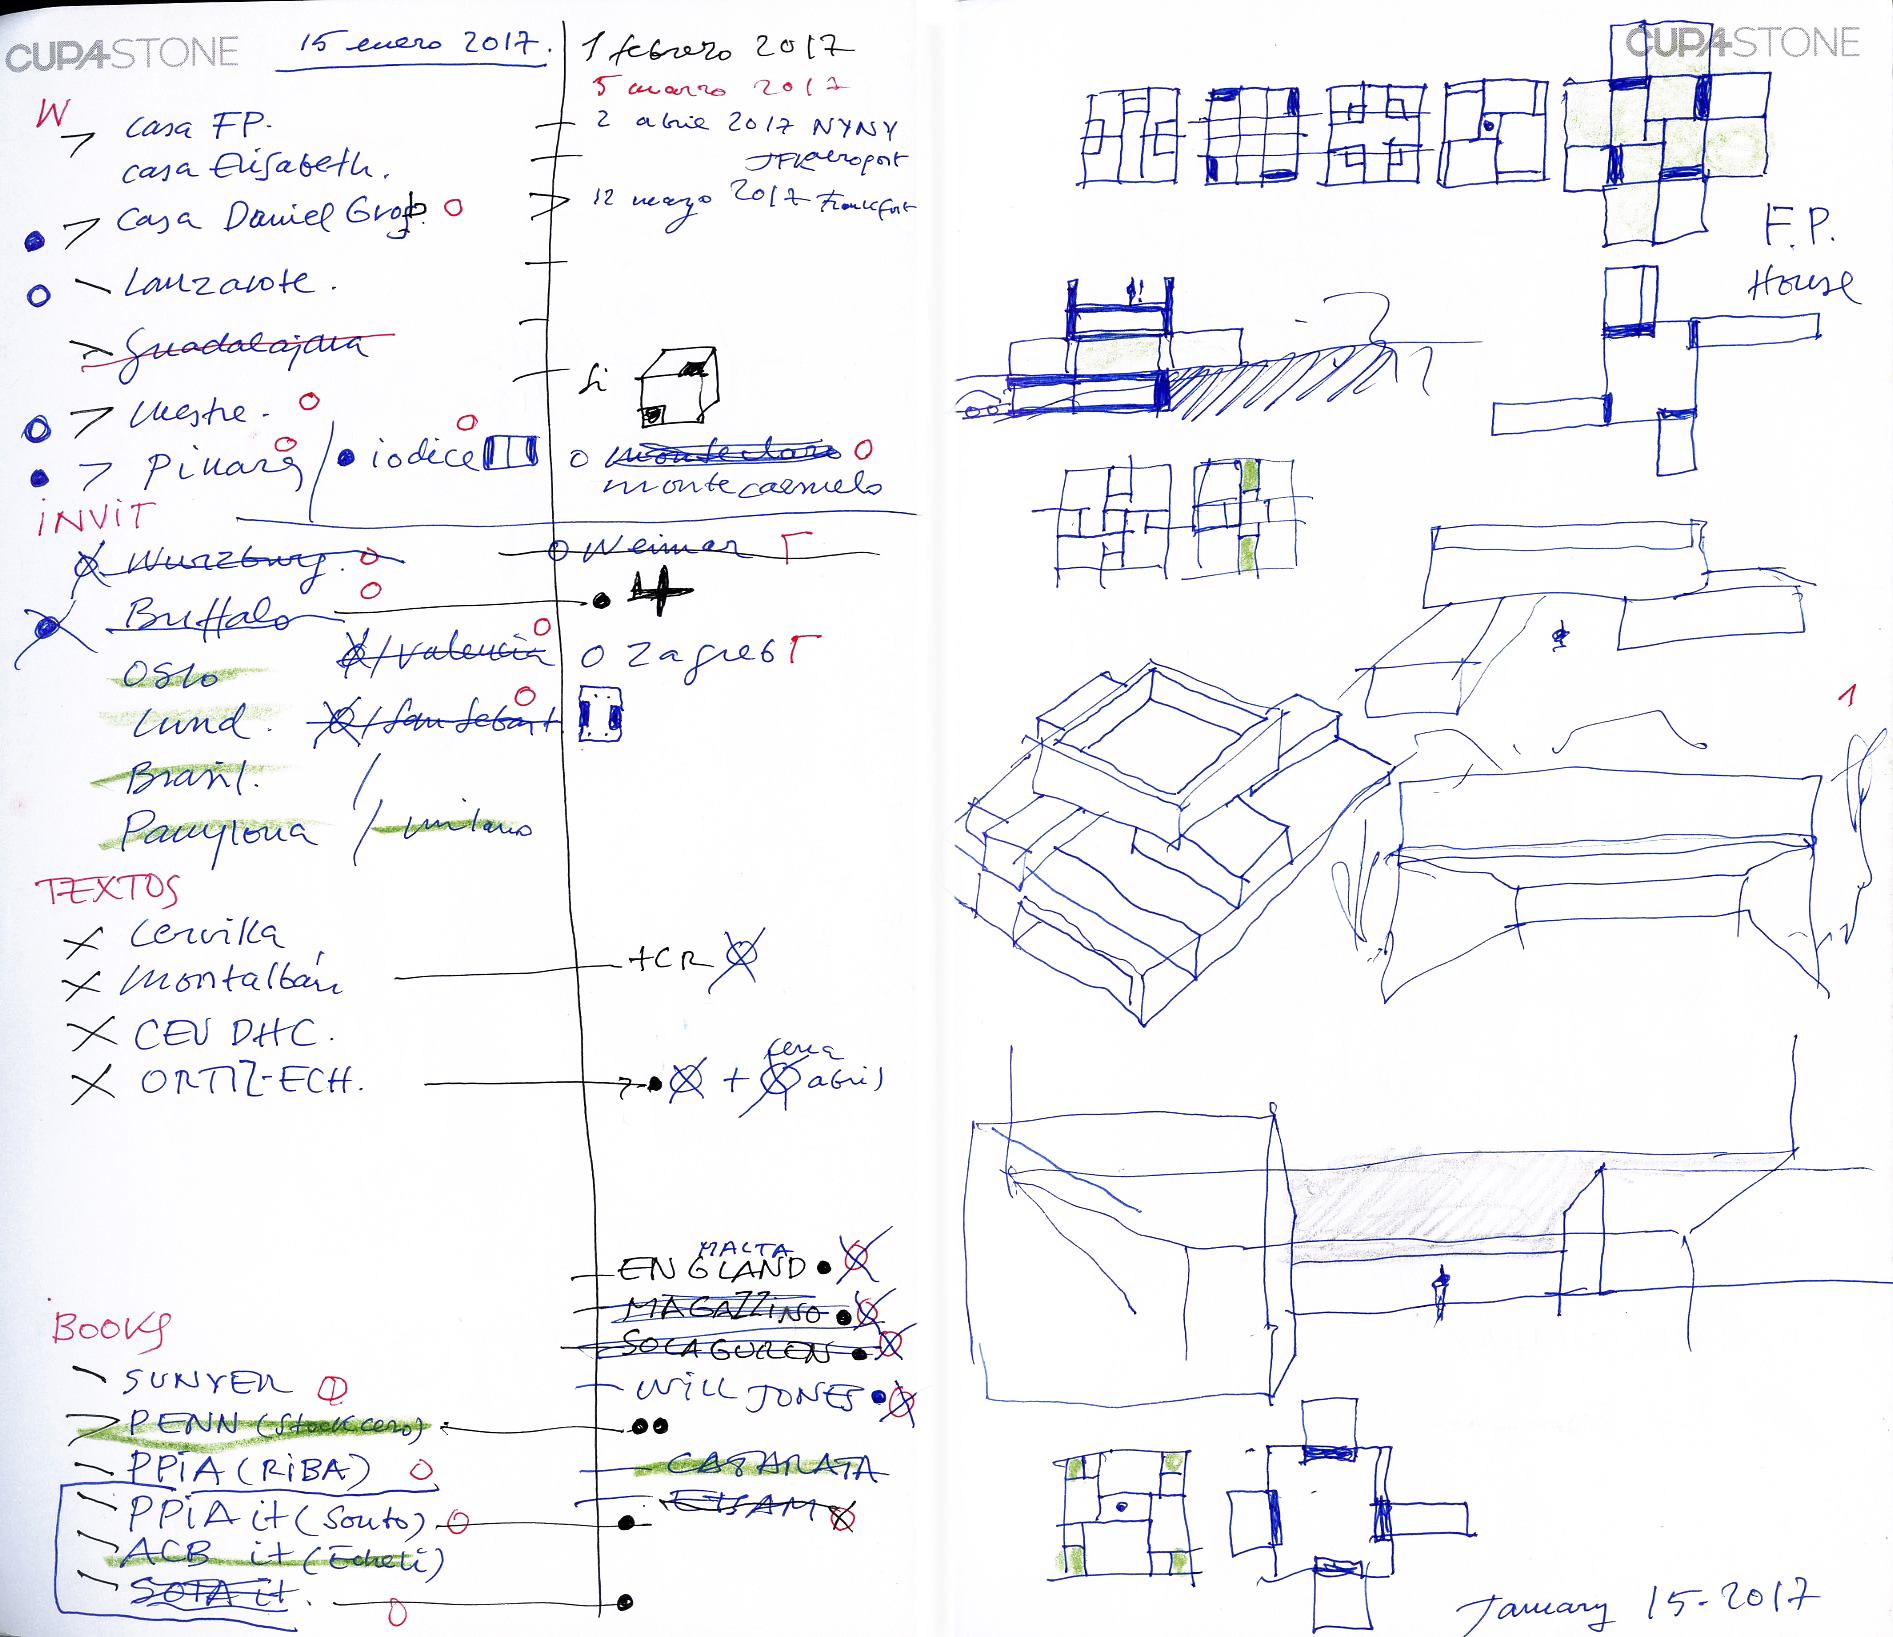 CUPA STONE
15 enero 2017.
W
casa FP.
casa Elisabeth.
Casa Daniel
Lanzarote.
Guadalajara
Mestre.
Pinarq / iodice
INVIT
Wurzburg.
Buffalo
/Valencia
Oslo
Lund. /San Sebast.
Brasil. /
Pamplona / milano
TEXTOS
Cervilla
Montalbán
CEU DHC.
ORTIZ-ECH.
BOOKS
SUNYER
PENN (Stockcero)
PPiA (RiBA)
PPiA it (Souto)
ACB it (Echeli)
SOTA it.
1 febrero 2017
5 marzo 2017
2 abril 2017 NYNY
JFK aeroport
12 mayo 2017 Frankfort
Si
monteclaro
montecarmelo
Weimar
Zagreb
+CR
+ feria
abril
MALTA
ENGLAND
MAGAZZINO
SOLAGUREN
WILL JONES
CATARATA
ETSAM
CUPA STONE
F.P.
House
1
January 15-2017